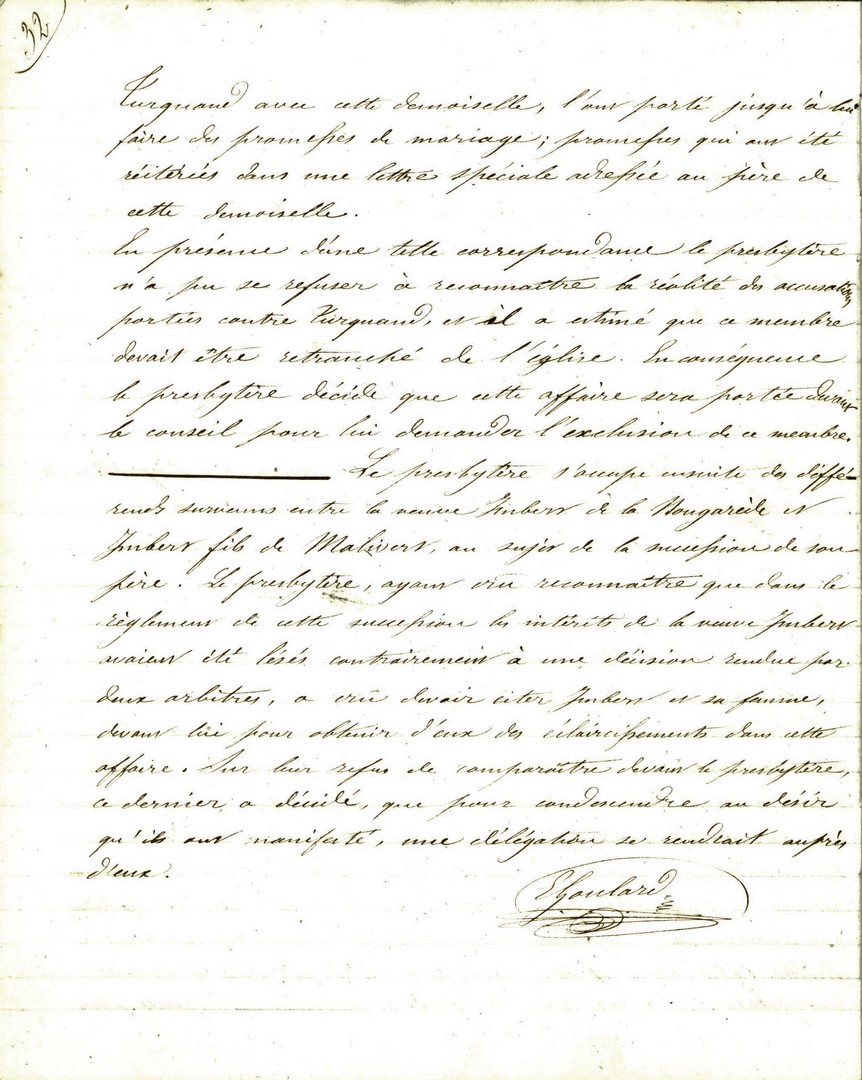 32
Turquand avec cette demoiselle, l'ont porté jusqu'à lui
faire des promesses de mariage; promesses qui ont été
réiterées dans une lettre spéciale adressée au père de
cette demoiselle.
En présence d'une telle correspondance le presbytère
n'a pu se refuser à reconnaître la réalité des accusations
portées contre Turquand, et il a estimé que ce membre
devait être retranché de l'église. En conséquence
le presbytère décide que cette affaire sera portée devant
le conseil pour lui demander l'exclusion de ce membre.
Le presbytère s'occupe ensuite des diffé-
rends survenus entre la veuve Imbert de la Bougarède et
Imbert fils de Malivert, au sujet de la succession de son
père. Le presbytère, ayant cru reconnaître que dans le
règlement de cette succession les intérêts de la veuve Imbert
avaient été lésés contrairement à une décision rendue par
deux arbitres, a crû devoir citer Imbert et sa femme,
devant lui pour obtenir d'eux des éclaircissements dans cette
affaire. Sur leur refus de comparaître devant le presbytère,
ce dernier a décidé, que pour condescendre au désir
qu'ils ont manifesté, une délégation se rendrait auprès
d'eux.
E Goulard